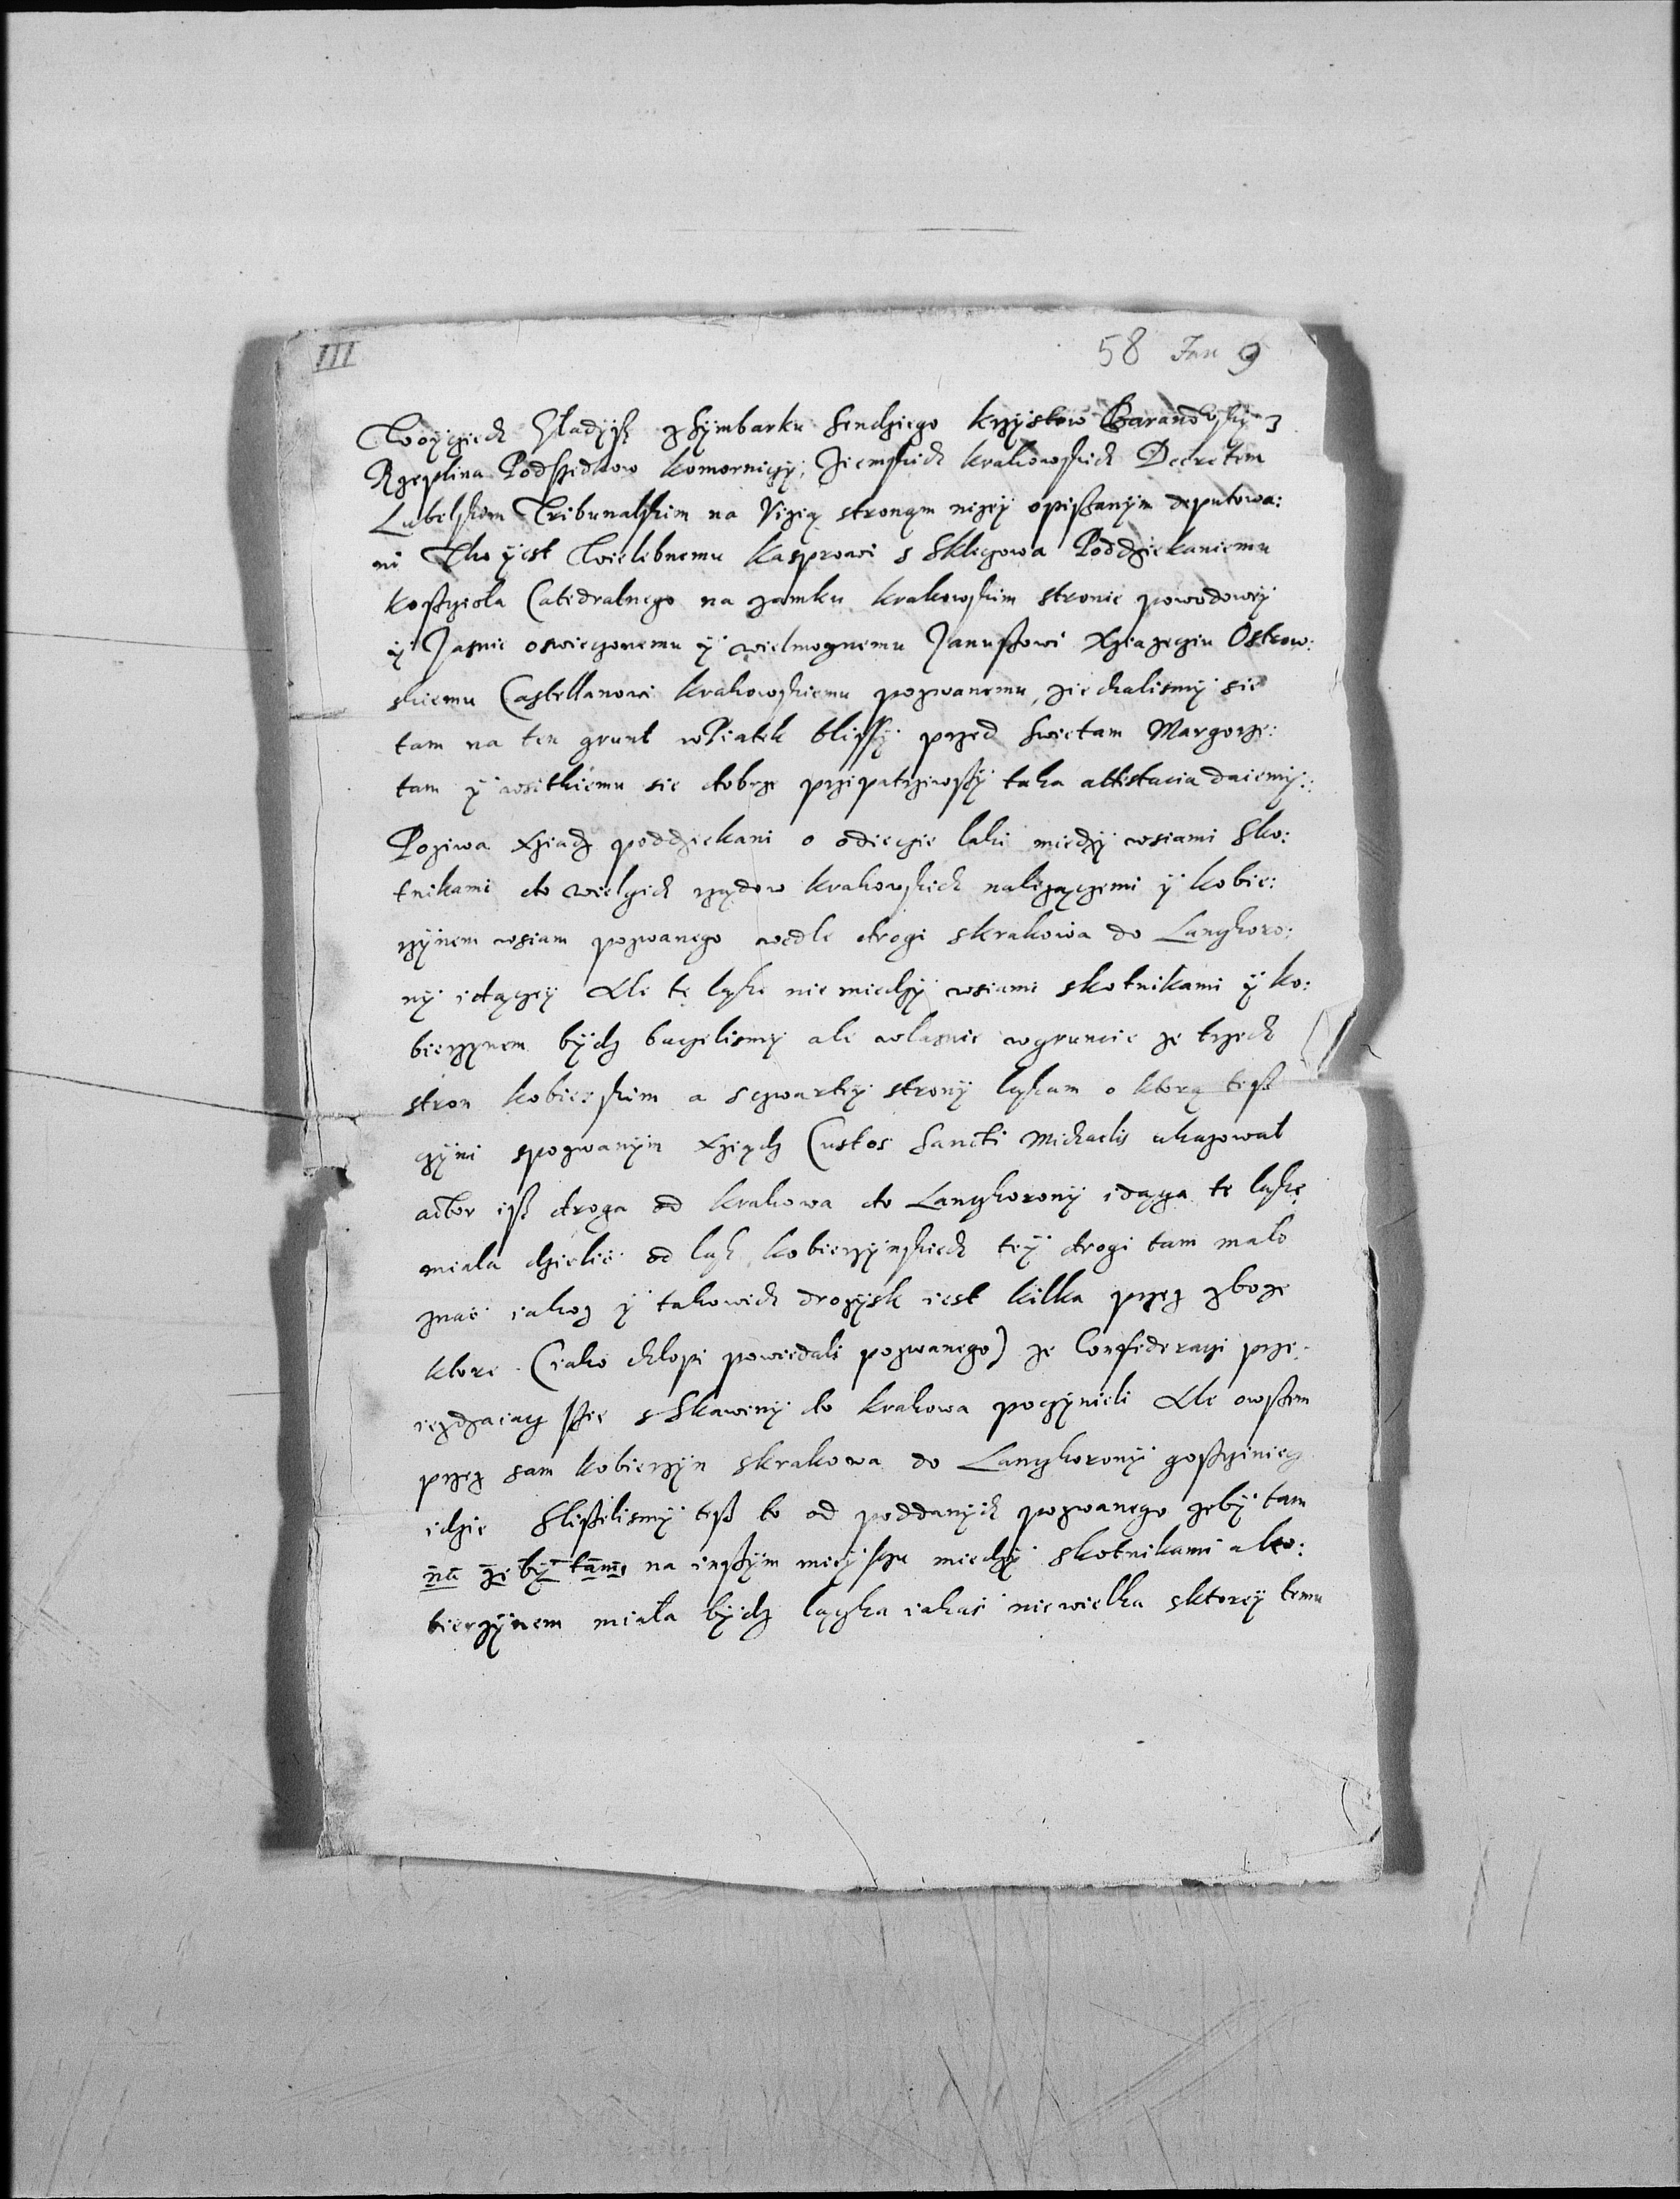 III
58 Jan 9
Woyciech Gladysz z Szymbarku Sendziego krzysstow Baranowsky z
Rzeplina Podsędkow komorniczy, Ziemskich krakowskich Decretem
Lubelskim Tribunalskim na Vizią stronąm nizey opissanÿm deputowa:
ni Tho ÿest Wielebnemu kasprowi s Sklegowa Poddziekaniemu
kosscziola Catedralnego na zamku krakowskim stronie powodoweÿ
ÿ Jasnie oswieczonemu ÿ wielmoznemu Janussowi Xziazeciu Ostrow:
skiemu Castellanowi krakowskiemu pozwanemu, ziechalismÿ sie
tam na ten grunt wPiatek blissÿ przed Swietam Margorze:
tam ÿ wsitkiemu sie dobrze przipatrziwssÿ taka attistacia daiemÿ:
Poziwa Xziadz poddziekani o odięcie laki miedzÿ wsiami Sko:
tnikami do wielgich rządow krakowskich nalizączemi ÿ kobie:
rzÿnem wsiam pozwanego wedle drogi skrakowa do Lanczkoro:
nÿ idączeÿ Ale tę ląke nie miedzÿ wsiami skotnikami ÿ ko:
bierzÿnem bÿdz baczelismÿ ale wlasnie wgruncie ze trzech
stron kobierskim a sczwarteÿ stronÿ ląkam o ktorą tess
czÿni spozwanÿm Xziądz Custos Sancti Michaelis ukazowal
actor iss droga od krakowa do Lanczkoronÿ idącza te ląkę
miala dzielić od ląk kobierzÿnskich teÿ drogi tam malo
znać iakoz ÿ takowich drozÿsk iest kilka przez zboze
ktore (iako chlopi powiedali pozwanego) ze Confideraci prze
iezdzaiacz ssie s Skawinÿ do krakowa poczÿnieli Ale owssem
przez sam kobierzÿn skrakowa do Lanczkoronÿ gosscziniecz
idzie Slisselismÿ tess to od poddanÿch pozwanego zebÿ tam
nā ze bÿ tam na inssÿm mieÿsczu miedzÿ skotnikami a ko:
bierzÿnem miala bÿdz lączka iakas niewielka sktoreÿ temu